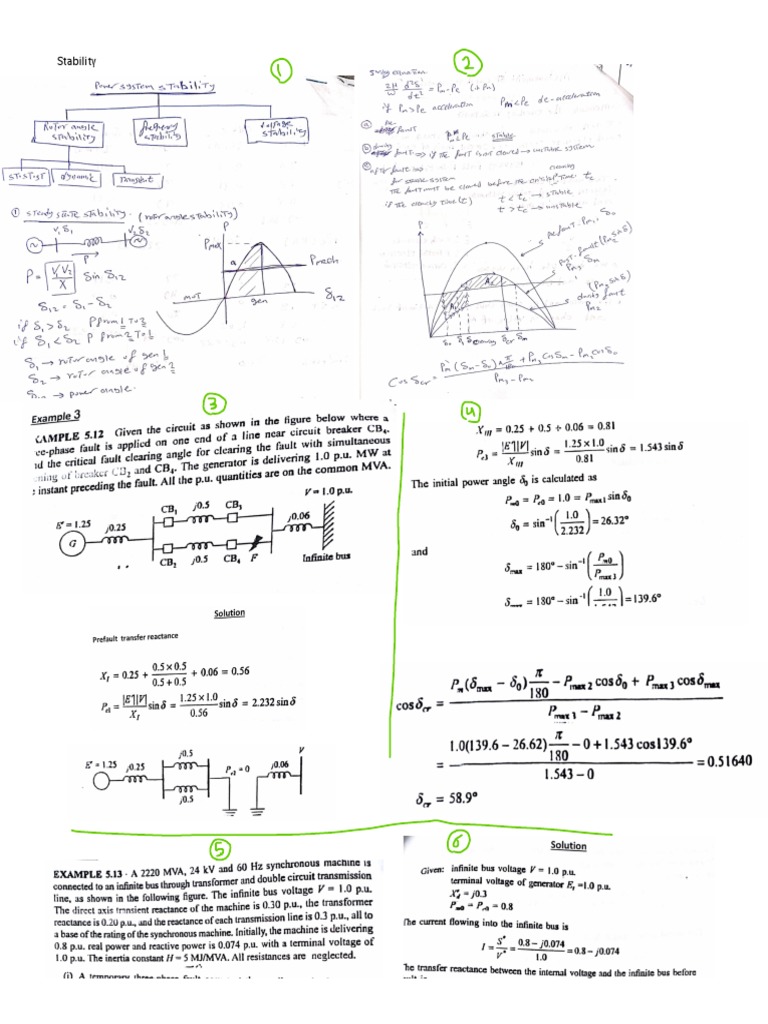 Stability
①
②
Power system stability
Rotor angle stability
frequency stability
voltage stability
dynamic
transient
① steady state stability. (rotor angle stability)
V₁δ₁
V₂δ₂
P
P = V₁V₂/X Sin δ₁₂
δ₁₂ = δ₁ - δ₂
if δ₁>δ₂ P from 1 To 2
if δ₁<δ₂ P from 2 To 1
δ₁ → rotor angle of gen 1
δ₂ → rotor angle of gen 2
→ power angle.
P
Pmax
a
Pmech
mot
gen
δ₁₂
swing equation
2H/ω d²δ/dt² = Pm-Pe
if Pm>Pe acceleration Pm<Pe de-acceleration
stable
if the fault is not cleared → unstable system
the fault must be cleared before the critical time tc
if the clearing time (t) t < tc → stable
t > tc → unstable
P
A₁
A₂
δ₀
Cos δcr =
③
Example 3
XAMPLE 5.12 Given the circuit as shown in the figure below where a
ee-phase fault is applied on one end of a line near circuit breaker CB₄.
nd the critical fault clearing angle for clearing the fault with simultaneous
ning of breaker CB₂ and CB₄. The generator is delivering 1.0 p.u. MW at
instant preceding the fault. All the p.u. quantities are on the common MVA.
V = 1.0 p.u.
E' = 1.25
j0.25
G
CB₁
j0.5
CB₃
j0.06
CB₂
j0.5
CB₄
F
Infinite bus
Solution
Prefault transfer reactance
X_I = 0.25 + (0.5 × 0.5)/(0.5 + 0.5) + 0.06 = 0.56
P_e1 = |E'||V|/X_I sin δ = (1.25 × 1.0)/0.56 sin δ = 2.232 sin δ
E' = 1.25
j0.25
j0.5
j0.5
P_e2 = 0
j0.06
V
④
X_III = 0.25 + 0.5 + 0.06 = 0.81
P_e3 = |E'||V|/X_III sin δ = (1.25 × 1.0)/0.81 sin δ = 1.543 sin δ
The initial power angle δ₀ is calculated as
P_m0 = P_e0 = 1.0 = P_max1 sin δ₀
δ₀ = sin⁻¹(1.0/2.232) = 26.32°
and
δ_max = 180° − sin⁻¹(P_m0/P_max3)
= 180° − sin⁻¹(1.0/ ) = 139.6°
cos δ_cr = (P_m(δ_max − δ₀) π/180 − P_max2 cos δ₀ + P_max3 cos δ_max)/(P_max1 − P_max2)
= (1.0(139.6 − 26.62) π/180 − 0 + 1.543 cos 139.6°)/(1.543 − 0) = 0.51640
δ_cr = 58.9°
⑤
EXAMPLE 5.13 - A 2220 MVA, 24 kV and 60 Hz synchronous machine is
connected to an infinite bus through transformer and double circuit transmission
line, as shown in the following figure. The infinite bus voltage V = 1.0 p.u.
The direct axis transient reactance of the machine is 0.30 p.u., the transformer
reactance is 0.20 p.u., and the reactance of each transmission line is 0.3 p.u., all to
a base of the rating of the synchronous machine. Initially, the machine is delivering
0.8 p.u. real power and reactive power is 0.074 p.u. with a terminal voltage of
1.0 p.u. The inertia constant H = 5 MJ/MVA. All resistances are neglected.
⑥
Solution
Given: infinite bus voltage V = 1.0 p.u.
terminal voltage of generator E_t = 1.0 p.u.
X'_d = j0.3
P_m0 = P_e0 = 0.8
The current flowing into the infinite bus is
I = S*/V* = (0.8 − j0.074)/1.0 = 0.8 − j0.074
The transfer reactance between the internal voltage and the infinite bus before